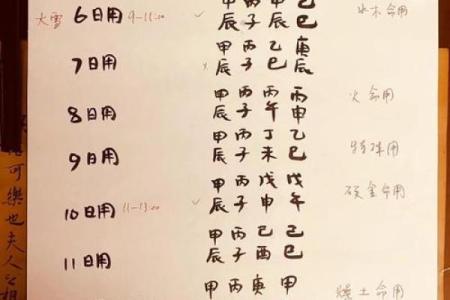 甲 丙 甲 己
大雪 6日用 9-11:00 辰 子 辰 巳 水木命用
甲 丙 乙 庚
7日用 辰 子 巳 辰
甲 丙 丙 丙
8日用 辰 子 午 申 火命用
甲 丙 丁 乙
9日用 辰 子 未 巳 特殊用
甲 丙 戊 戊
10日用 11-13:00 辰 子 申 午 命用
甲 丙 己 己
11日用 辰 子 酉 巳
甲 丙 庚 甲
土命用
可樂也夫人公相